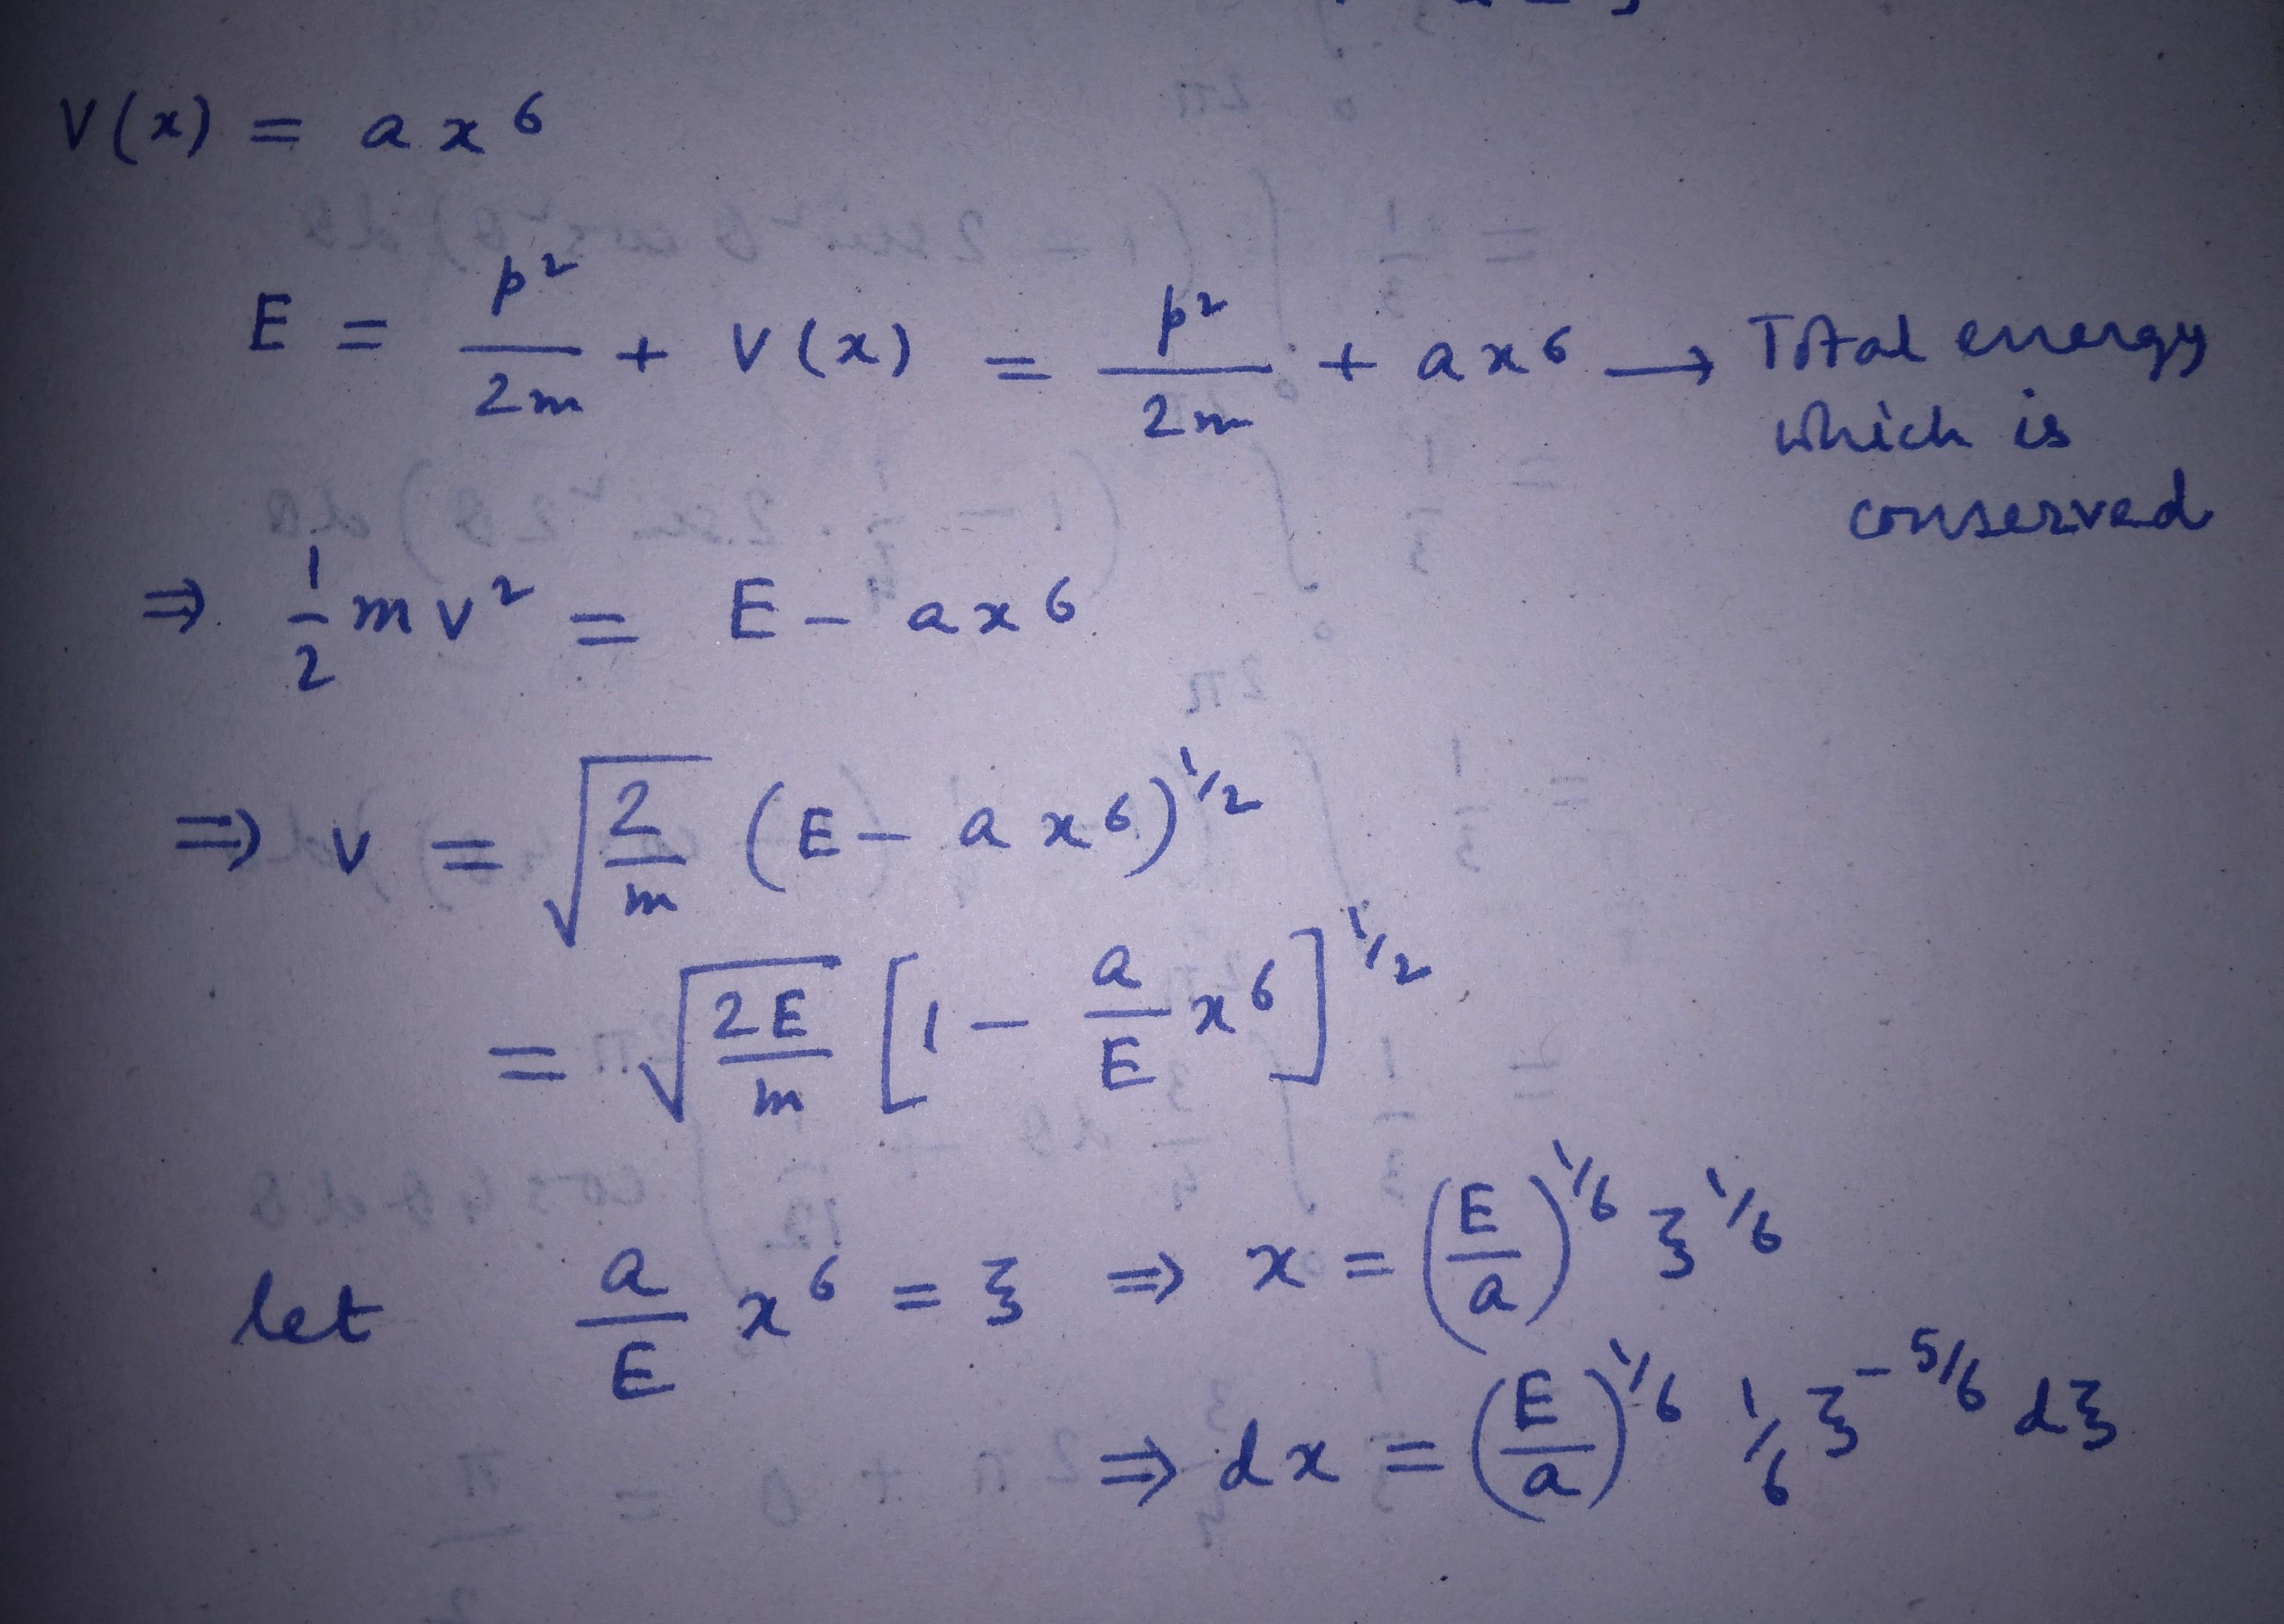 V(x) = ax⁶
E = p²/2m + V(x) = p²/2m + ax⁶ → Total energy
which is
conserved
⇒ 1/2 mv² = E - ax⁶
⇒ v = √(2/m) (E - ax⁶)^1/2
= √(2E/m) [1 - a/E x⁶]^1/2
let a/E x⁶ = ξ ⇒ x = (E/a)^1/6 ξ^1/6
⇒ dx = (E/a)^1/6 1/6 ξ^-5/6 dξ